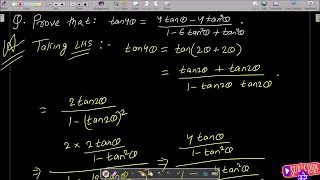 Q. Prove that: tan4θ = (4 tanθ − 4 tan³θ) / (1 − 6 tan²θ + tan⁴θ) .
Taking LHS :- tan4θ = tan(2θ + 2θ)
= (tan2θ + tan2θ) / (1 − tan2θ tan2θ)
= 2 tan2θ / (1 − (tan2θ)²)
⇒ 2 × 2 tanθ / (1 − tan²θ)
⇒ 4 tanθ / (1 − tan²θ)
4 tan²θ